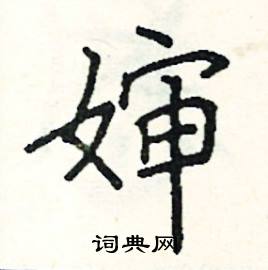 婶
词典网